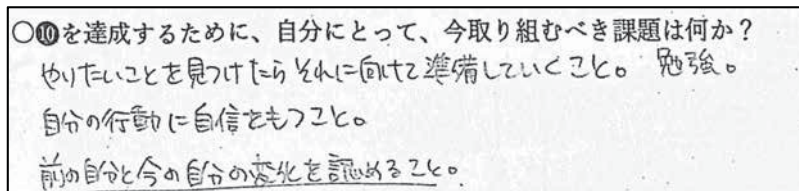 ○❿を達成するために、自分にとって、今取り組むべき課題は何か？
やりたいことを見つけたらそれに向けて準備していくこと。 勉強。
自分の行動に自信をもつこと。
前の自分と今の自分の変化を認めること。